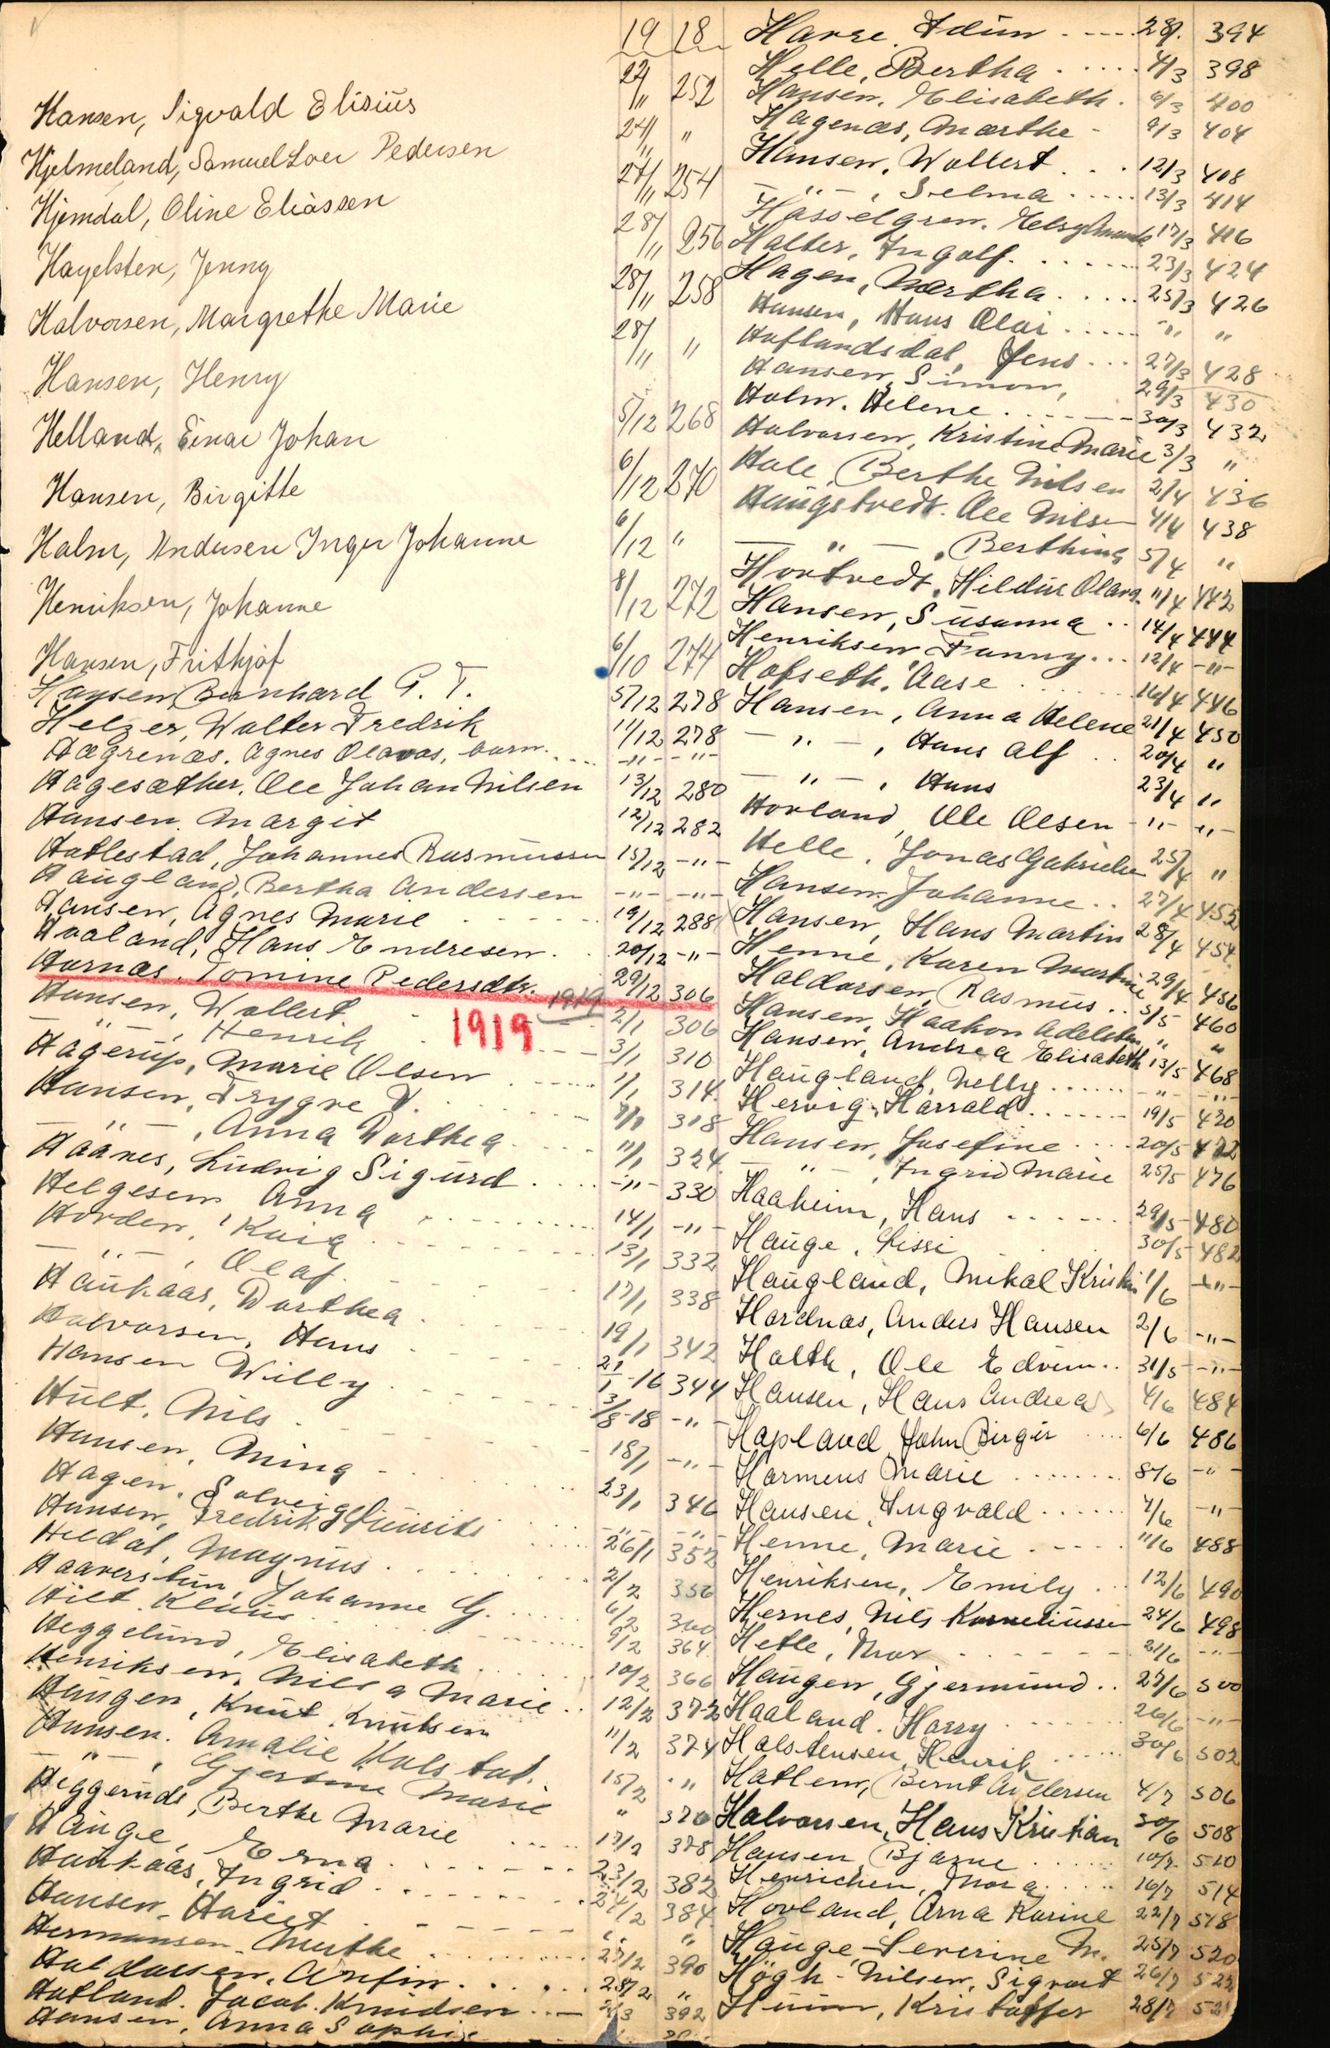 19 18
Hansen, Sigvald Elisius 22/11 252
Hjelmeland, Samuel Loer Pedersen 24/11 "
Hjemdal, Oline Eliassen 27/11 254
Hagelsten, Jenny 28/11 256
Halvorsen, Margrethe Marie 28/11 258
Hansen, Henry 28/11 "
Helland, Einar Johan 5/12 268
Hansen, Birgitte 6/12 270
Halm, Andersen Inger Johanne 6/12 "
Henriksen, Johanne 8/12 272
Hansen, Frithjof 6/10 274
Hansen, Bernhard G. T. 5/12 278
Helzer, Walter Fredrik 11/12 278
Hægrenæs, Agnes Olavas, barn -"- -"-
Hagesæther, Ole Johan Nilsen 13/12 280
Hansen, Margit 12/12 282
Hatlestad, Johannes Rasmussen 15/12 -"-
Haugland, Bertha Andersen -"- -"-
Hansen, Agnes Marie 19/12 288
Hvaland, Hans Endresen 20/12 -"-
Hornæs, Tomine Pedersdtr. 29/12 306
1919
1919
Hansen, Wollert 2/1 306
-"-, Henrik 3/1 310
Hagerup, Marie Olsen 1/1 314
Hansen, Trygve 318
-"-, Anna Dorthea 11/1 324
Haanes, Ludvig Sigurd -"- 330
Helgesen Anna 14/1 -"-
Horden, 13/1 332
-"-, Olaf 17/1 338
Haukaas, Dorthea 19/1 342
Halvorsen, Hans 344
Hansen Willy 3/8-18 -"-
Hult, Nils 18/1 -"-
Hansen, Minna 23/1 346
Hagen, Solveig -"- -"-
Hansen, Fredrik 26/1 352
Hildal, Magnus 2/2 356
Johanne G. 6/2 360
9/2 364
Heggelund, Elisabeth 10/2 366
Henriksen, Nilsa Marie 12/2 372
Haugen, Knut Knutsen 11/2 374
Hansen, Amalie 15/2 "
-"-, Gjertine Marie " 376
Heggernds, Berthe Marie 17/2 378
Hauge, Erna 23/2 382
Haukaas, Ingrid 24/2 384
Hansen, Hariet " "
Hermansen, Merthe 27/2 390
Haldorsen, Arnfin 28/2 "
Hatland, Jacob Knudsen 2/3 392
Hansen, Anna Sophie
Idun 28/ 394
Helle, Bertha 4/3 398
Hansen, Elisabeth 6/3 400
Hagenæs, Marthe 9/3 404
Hansen, Wollert 12/3 408
-"-, Selma 13/3 414
Hasselgren, 17/3 416
Halter, Ingolf 23/3 424
Hagen, Martha 25/3 426
Hansen, Hans Olai " "
Haflandsdal, Jens 27/3 428
Hansen, Simon, 29/3 430
Holm, Helene 30/3 432
Halvorsen, Kristine Marie 3/3 "
Hole, Berthe Nilsen 2/4 436
Haugstvedt, Ole Nilsen 4/4 438
-"-, Berthina 5/4 "
Hortvedt, Hildur 11/4 442
Hansen, Susanna 14/4 444
Henriksen Fanny 12/4 -"-
Hofseth, Aase 16/4 446
Hansen, Anna Helene 21/4 450
-"-, Hans Alf 20/4 "
-"-, Hans 23/4 "
Hovland, Ole Olsen -"- -"-
Helle, Jonas Gabrielsen 25/4 "
Hansen, Johanne 27/4 452
Hansen, Hans Martin 28/4 454
Henne, Karen Martine 29/4 456
Haldorsen, Rasmus 5/5 460
Hansen, Haakon Adelsten " "
Hansen, Andrea Elisabeth 13/5 468
Haugland, Nelly -"- -"-
Hervig, Harrald 19/5 470
Hansen, Josefine 20/5 472
-"-, Ingrid Marie 25/5 476
Haaheim, Hans 29/5 480
Hauge, Sissi 30/5 482
Haugland, Mikal Kristian 1/6 -"-
Hordnæs, Anders Hansen 2/6 -"-
Holth, Ole Edvin 31/5 -"-
Hansen, Hans Andreas 4/6 484
Hopland John Birger 6/6 486
Harmens Marie 8/6 -"-
Hansen, Ingvald 7/6 -"-
Henne, Marie 11/6 488
Henriksen, Emily 12/6 490
Hernes, Nils Korneliussen 24/6 498
Helle, Thor 21/6 -"-
Haugen, Gjermund 27/6 500
Haaland, Harry 26/6 -"-
Halstensen, Henrik 30/6 502
Hatlem, Bernt Andersen 4/7 506
Halvorsen, Hans Kristian 30/6 508
Hansen Bjarne 10/7 510
Henrichsen, Thora 16/7 514
Hovland, Arna Karine 22/7 518
Hauge, Severine M. 25/7 520
Høgh-Nilsen, Sigvart 26/7 522
Huun, Kristoffer 28/7 52